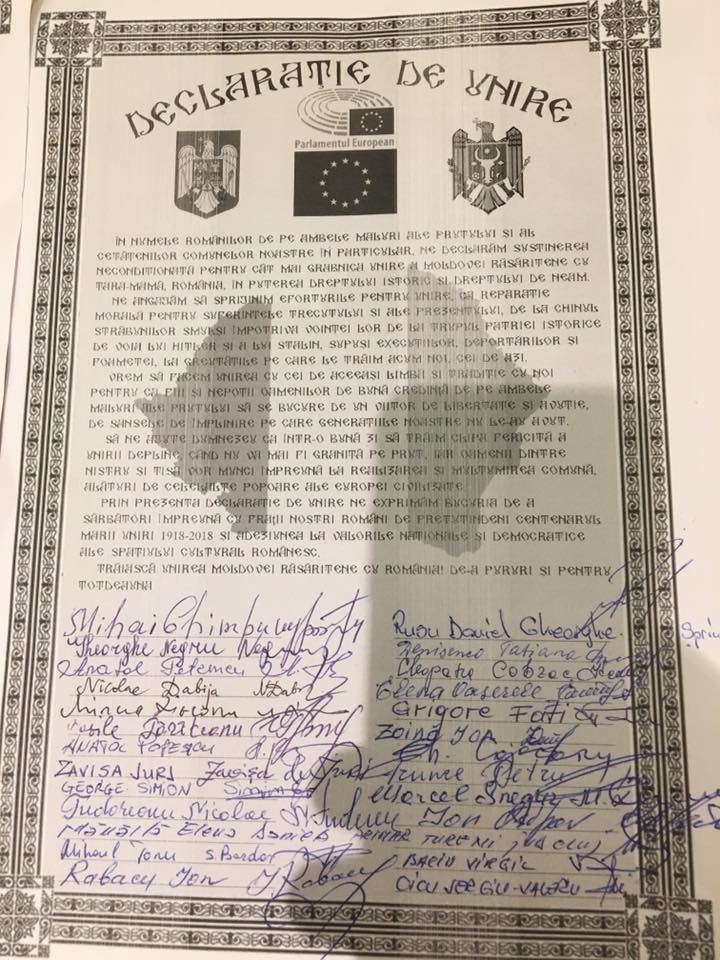 DECLARAȚIE DE UNIRE
Parlamentul European
ÎN NUMELE ROMÂNILOR DE PE AMBELE MALURI ALE PRUTULUI ȘI AL
CETĂȚENILOR COMUNELOR NOASTRE ÎN PARTICULAR, NE DECLARĂM SUSȚINEREA
NECONDIȚIONATĂ PENTRU CÂT MAI GRABNICA UNIRE A MOLDOVEI RĂSĂRITENE CU
ȚARA-MAMĂ, ROMÂNIA, ÎN PUTEREA DREPTULUI ISTORIC ȘI DREPTULUI DE NEAM.
NE ANGAJĂM SĂ SPRIJINIM EFORTURILE PENTRU UNIRE, CA REPARAȚIE
MORALĂ PENTRU SUFERINȚELE TRECUTULUI ȘI ALE PREZENTULUI, DE LA CHINUL
STRĂBUNILOR SMULȘI ÎMPOTRIVA VOINȚEI LOR DE LA TRUPUL PATRIEI ISTORICE
DE VOIA LUI HITLER ȘI A LUI STALIN, SUPUȘI EXECUȚIILOR, DEPORTĂRILOR ȘI
FOAMETEI, LA GREUTĂȚILE PE CARE LE TRĂIM ACUM NOI, CEI DE AZI.
VREM SĂ FACEM UNIREA CU CEI DE ACEEAȘI LIMBĂ ȘI TRADIȚIE CU NOI
PENTRU CA FIII ȘI NEPOȚII OAMENILOR DE BUNĂ CREDINȚĂ DE PE AMBELE
MALURI ALE PRUTULUI SĂ SE BUCURE DE UN VIITOR DE LIBERTATE ȘI AVUȚIE,
DE ȘANSELE DE ÎMPLINIRE PE CARE GENERAȚIILE NOASTRE NU LE-AU AVUT.
SĂ NE AJUTE DUMNEZEU CA ÎNTR-O BUNĂ ZI SĂ TRĂIM CLIPA FERICITĂ A
UNIRII DEPLINE, CÂND NU VA MAI FI GRANIȚĂ PE PRUT, IAR OAMENII DINTRE
NISTRU ȘI TISA VOR MUNCI ÎMPREUNĂ LA REALIZAREA ȘI MULȚUMIREA COMUNĂ,
ALĂTURI DE CELELALTE POPOARE ALE EUROPEI CIVILIZATE.
PRIN PREZENTA DECLARAȚIE DE UNIRE NE EXPRIMĂM BUCURIA DE A
SĂRBĂTORI ÎMPREUNĂ CU FRAȚII NOȘTRI ROMÂNI DE PRETUTINDENI CENTENARUL
MARII UNIRI 1918-2018 ȘI ADEZIUNEA LA VALORILE NAȚIONALE ȘI DEMOCRATICE
ALE SPAȚIULUI CULTURAL ROMÂNESC.
TRĂIASCĂ UNIREA MOLDOVEI RĂSĂRITENE CU ROMÂNIA! DE-A PURURI ȘI PENTRU
TOTDEAUNA
Mihai Ghimpu
Gheorghe Negru
Anatol Petrencu
Nicolae Dabija N Dabija
ANATOL POPESCU
ZAVISA JURJ
GEORGE SIMION
Tudoreanu Nicolae
Rabacu Ion
Rusu Daniel Gheorghe
Tatiana
Cleopatra
Elena
Grigore
Marcel
Ion
BACIU VIRGIL
CICU SERGIU-VALERIU